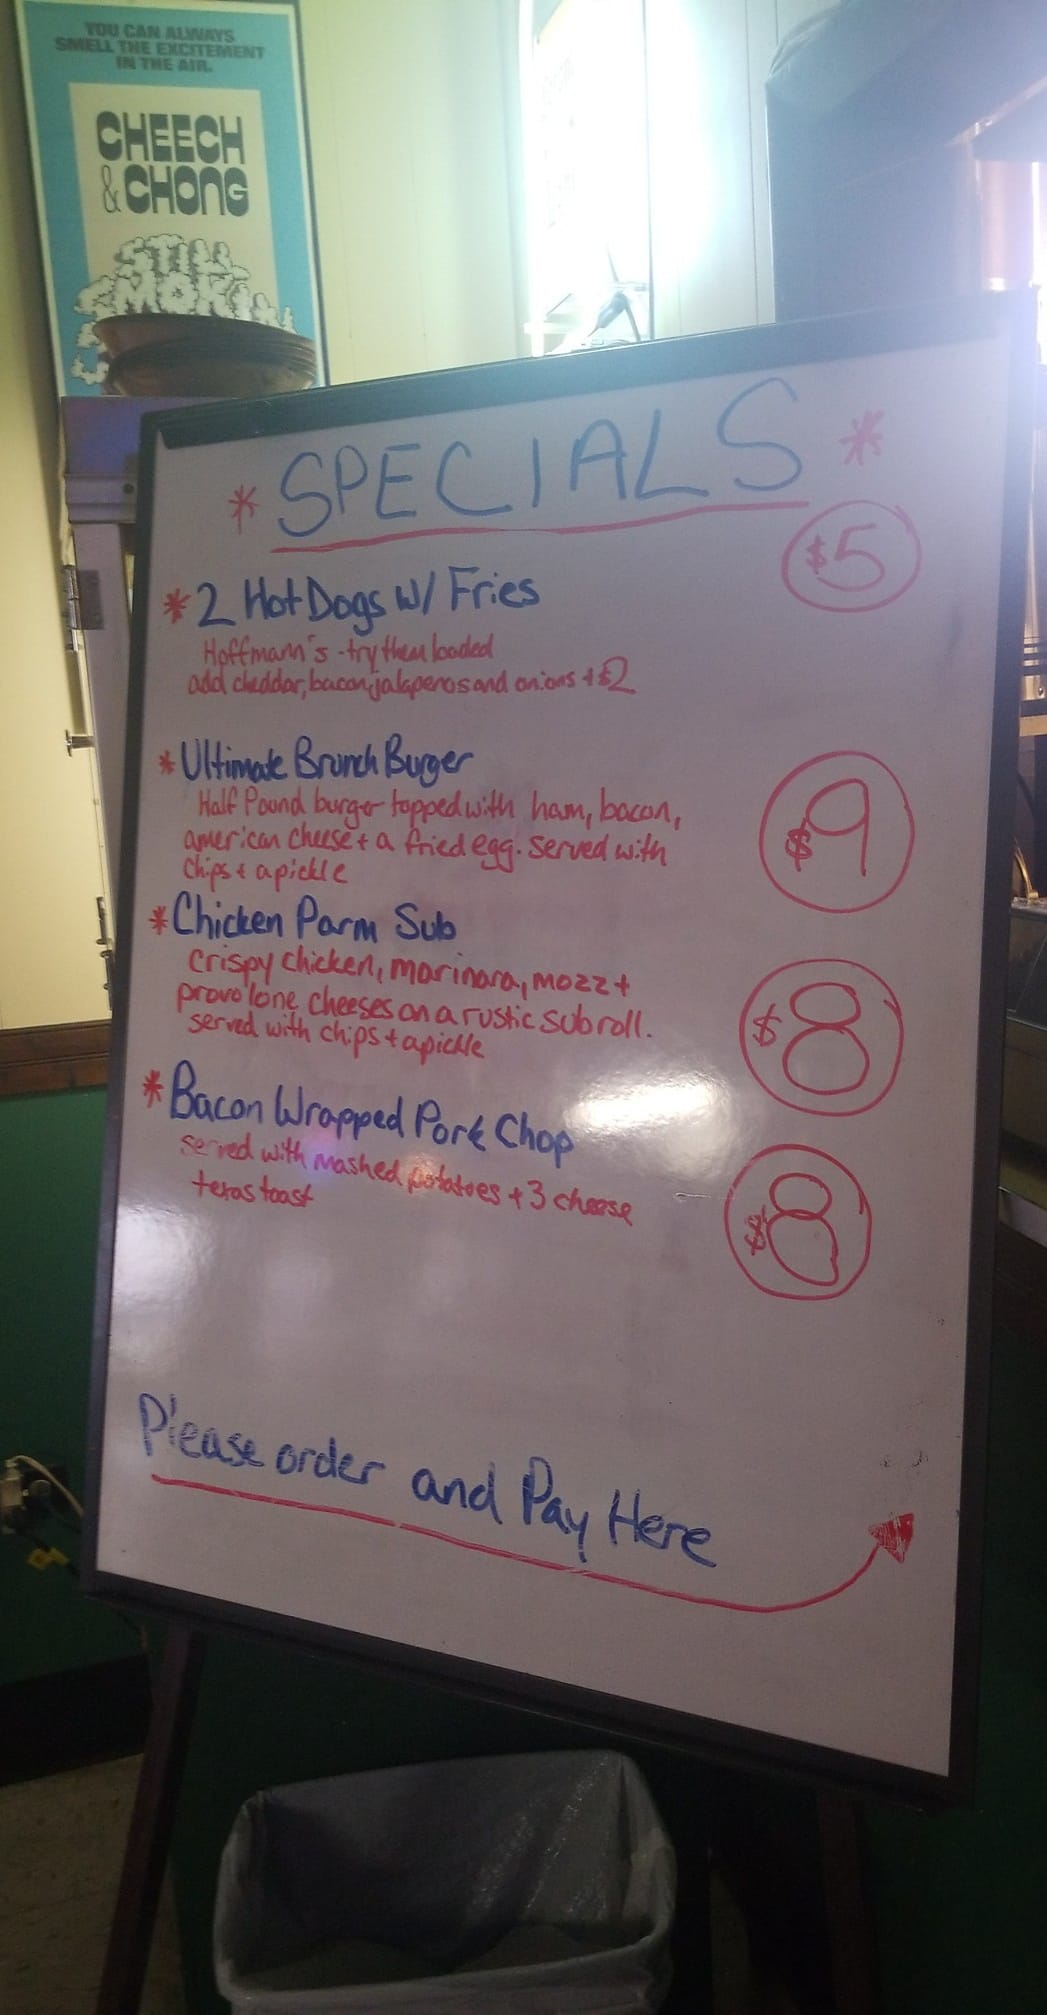 YOU CAN ALWAYS
SMELL THE EXCITEMENT
IN THE AIR.
CHEECH
& CHONG
STILL
SMOKIN
* SPECIALS *
$5
* 2 Hot Dogs w/ Fries
Hoffmann's - try them loaded
add cheddar, bacon, jalapenos and onions + $2
* Ultimate Brunch Burger
Half Pound burger topped with ham, bacon,
american cheese + a fried egg. served with
chips + a pickle
$9
* Chicken Parm Sub
crispy chicken, marinara, mozz +
provolone cheeses on a rustic sub roll.
served with chips + a pickle
$8
* Bacon Wrapped Pork Chop
served with mashed potatoes + 3 cheese
texas toast
$8
Please order and Pay Here